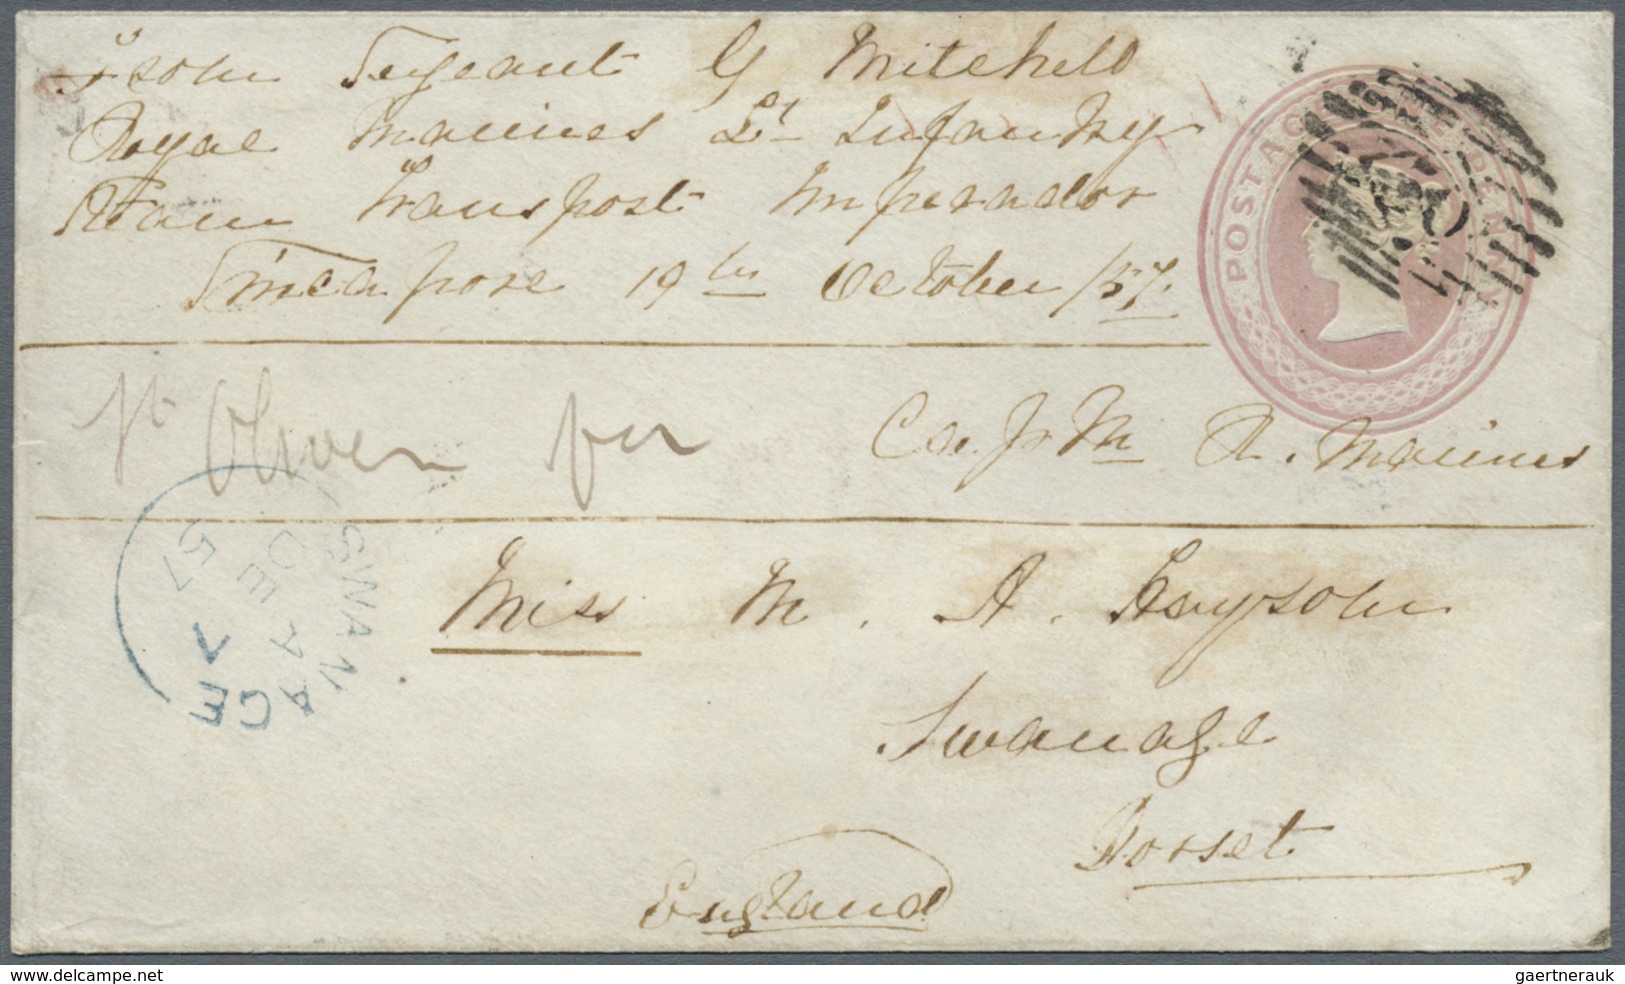 From Sergeant G Mitchell
Royal Marines Lt Infantry
Steam Transport Imperador
Sincapore 19th October /57
POSTAGE ONE PENNY
Oliver for
Capt M R. Marines
SWANAGE
DE 7
57
Miss M. A. Haysom
Swanage
Dorset
England
www.delcampe.net
gaertnerauk